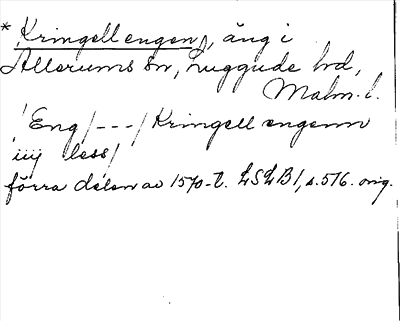 *Kringell engen, äng i
Allerums sn, Luggude hd,
Malm. l.
/Eng/---/Kringell engenn
iiij less/
förra delen av 1570-t. LSLB1, s. 516. orig.